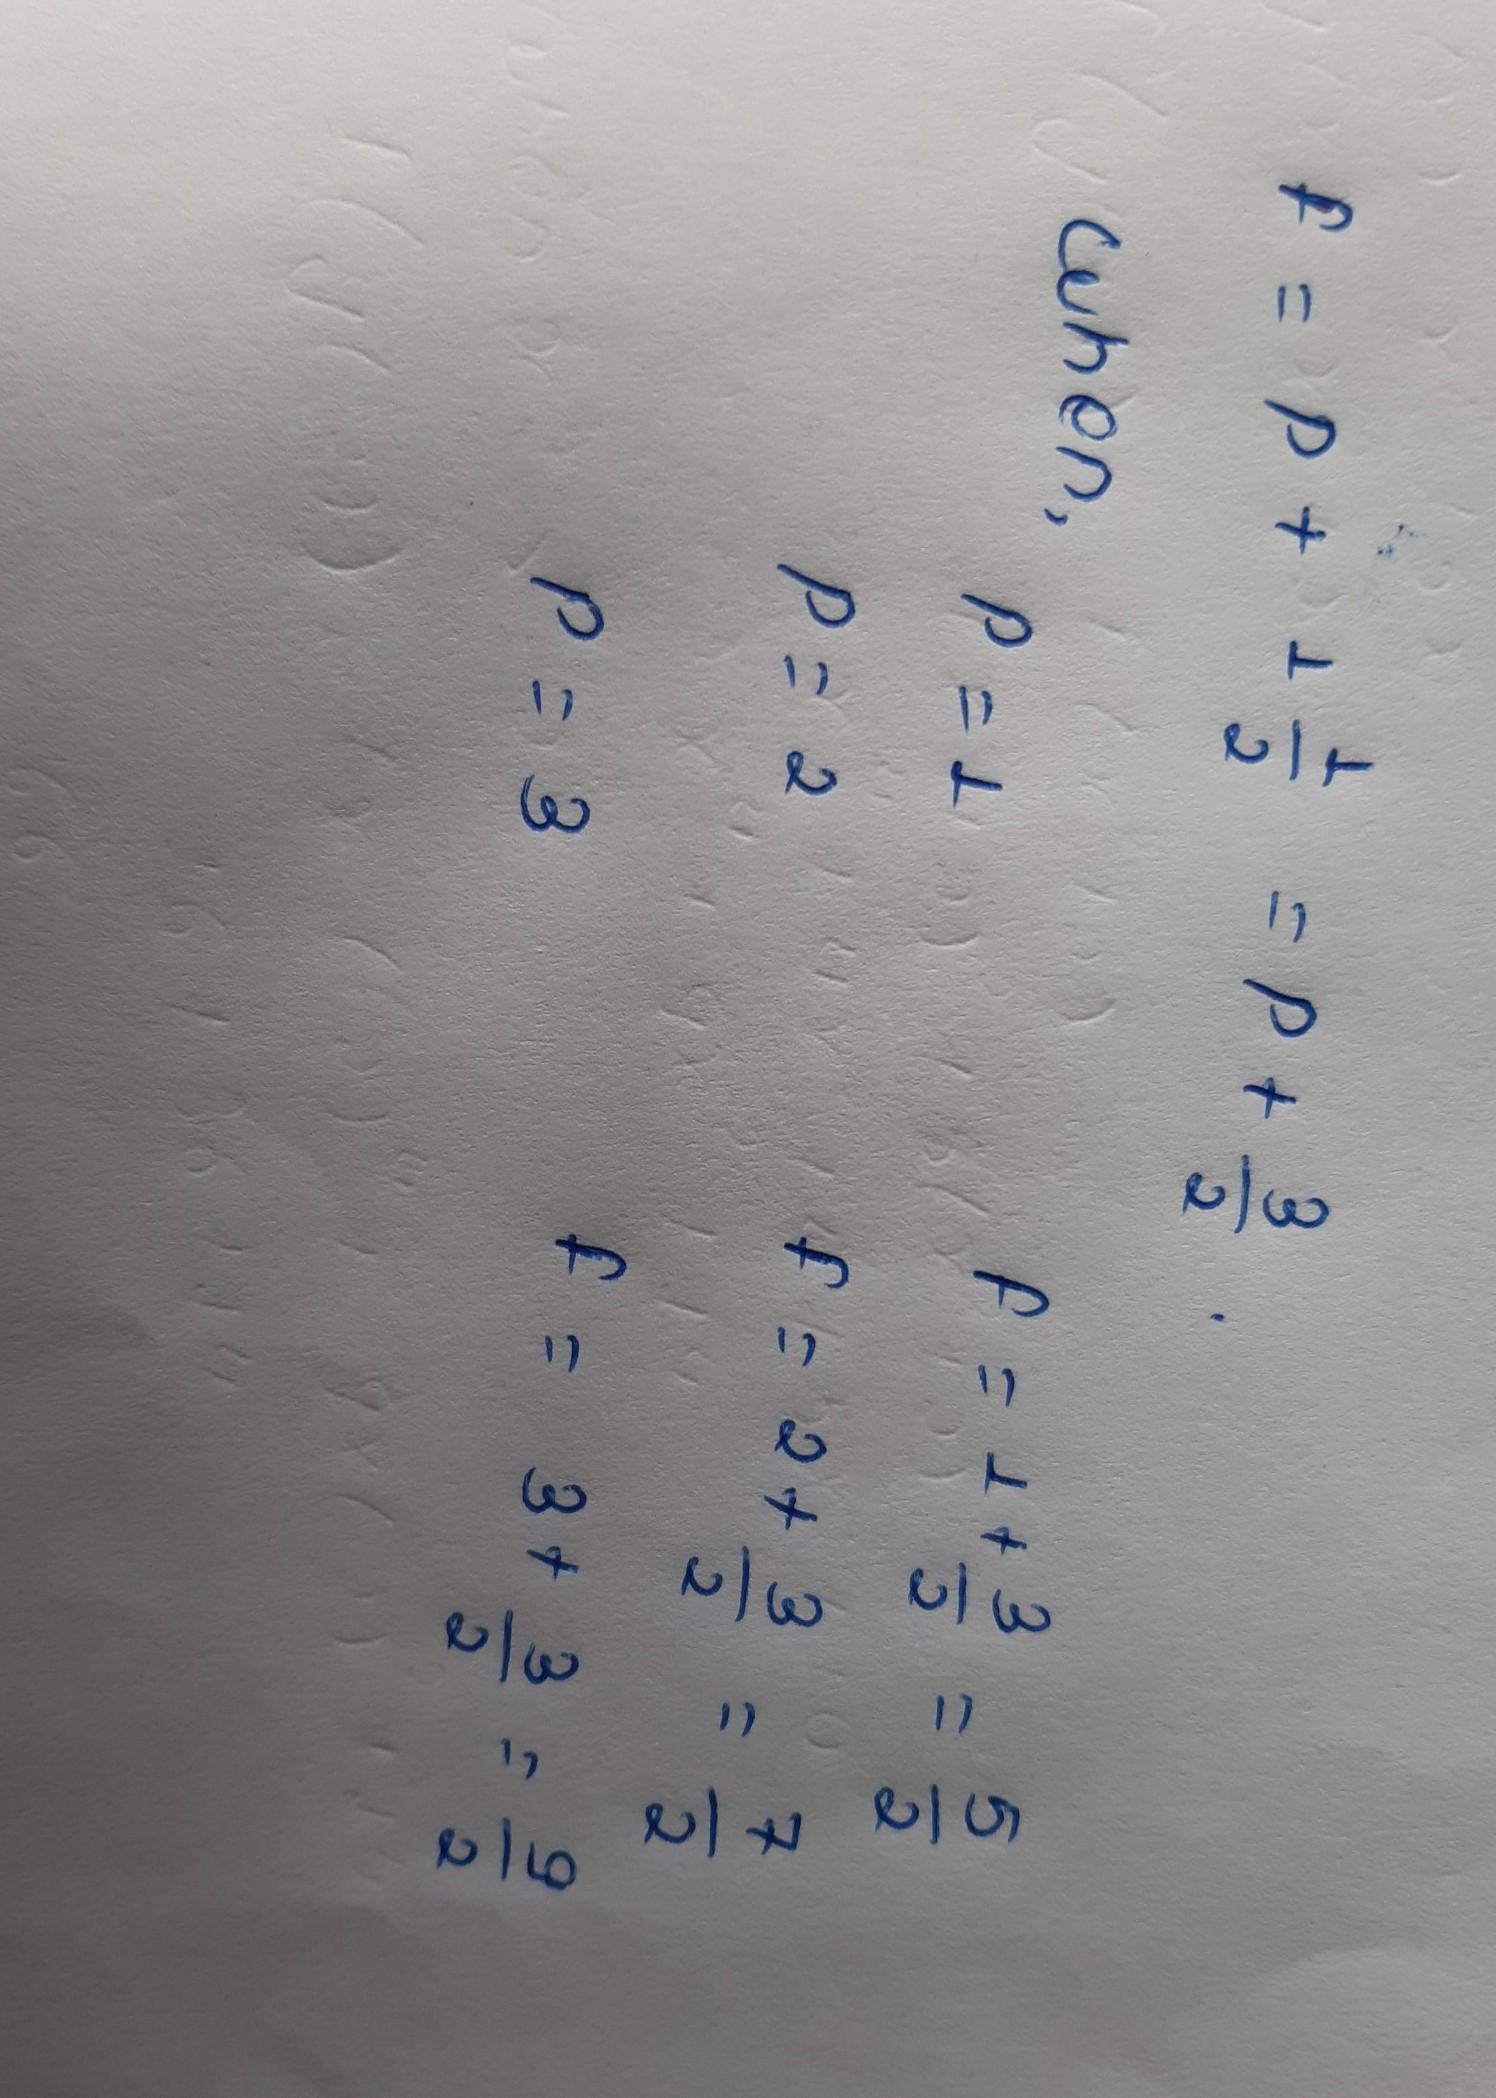 f = p + 1 1/2 = p + 3/2 .
when, p = 1 f = 1 + 3/2 = 5/2
p = 2 f = 2 + 3/2 = 7/2
p = 3 f = 3 + 3/2 = 9/2